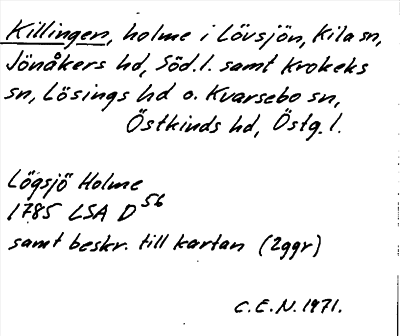 Killingen, holme i Lövsjön, Kila sn,
Jönåkers hd, Söd.l. samt Krokeks
sn, Lösings hd o. Kvarsebo sn,
Östkinds hd, Östg.l.
Lögsjö Holme
1785 LSA D 56
samt beskr. till kartan (2ggr)
C.E.N. 1971.